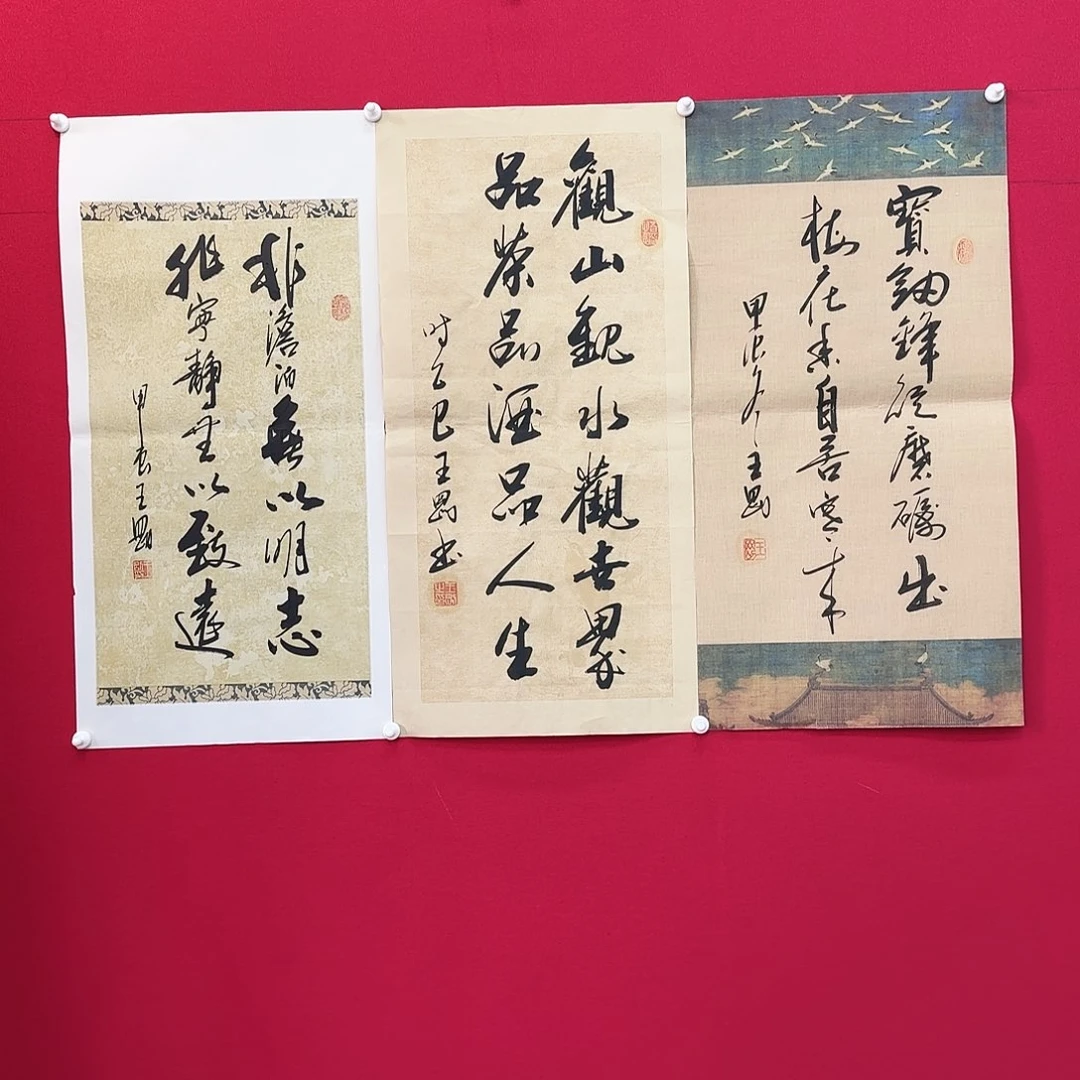 寶劍鋒從磨礪出
梅花香自苦寒來
甲辰冬王
觀山觀水觀世界
品茶品酒品人生
时乙巳王书
非澹泊無以明志
非寧靜無以致遠
甲辰王